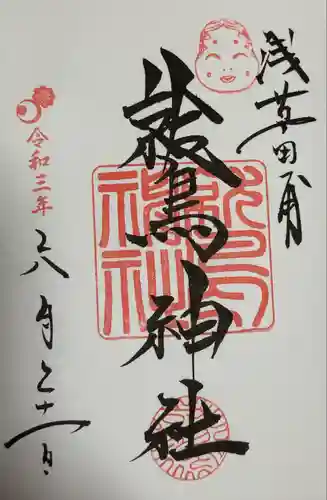 浅草田甫
鷲神社
鷲神社
令和三年
八月十一日